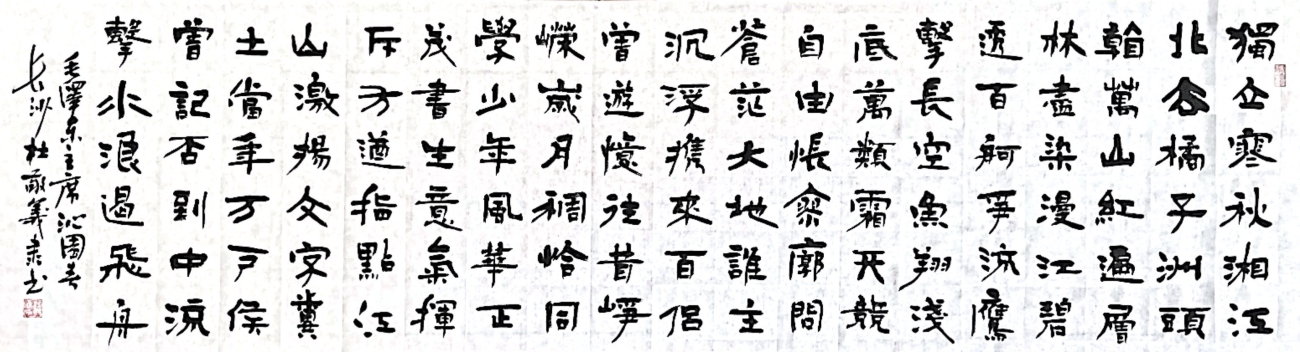 獨立寒秋湘江
北去橘子洲頭
看萬山紅遍層
林盡染漫江碧
透百舸爭流鷹
擊長空魚翔淺
底萬類霜天競
自由悵寥廓問
蒼茫大地誰主
沉浮攜來百侶
曾遊憶往昔崢
嶸歲月稠恰同
學少年風華正
茂書生意氣揮
斥方遒指點江
山激揚文字糞
土當年万戶侯
曾記否到中流
擊水浪遏飛舟
毛澤東主席沁園春
长沙杜敬義隶书